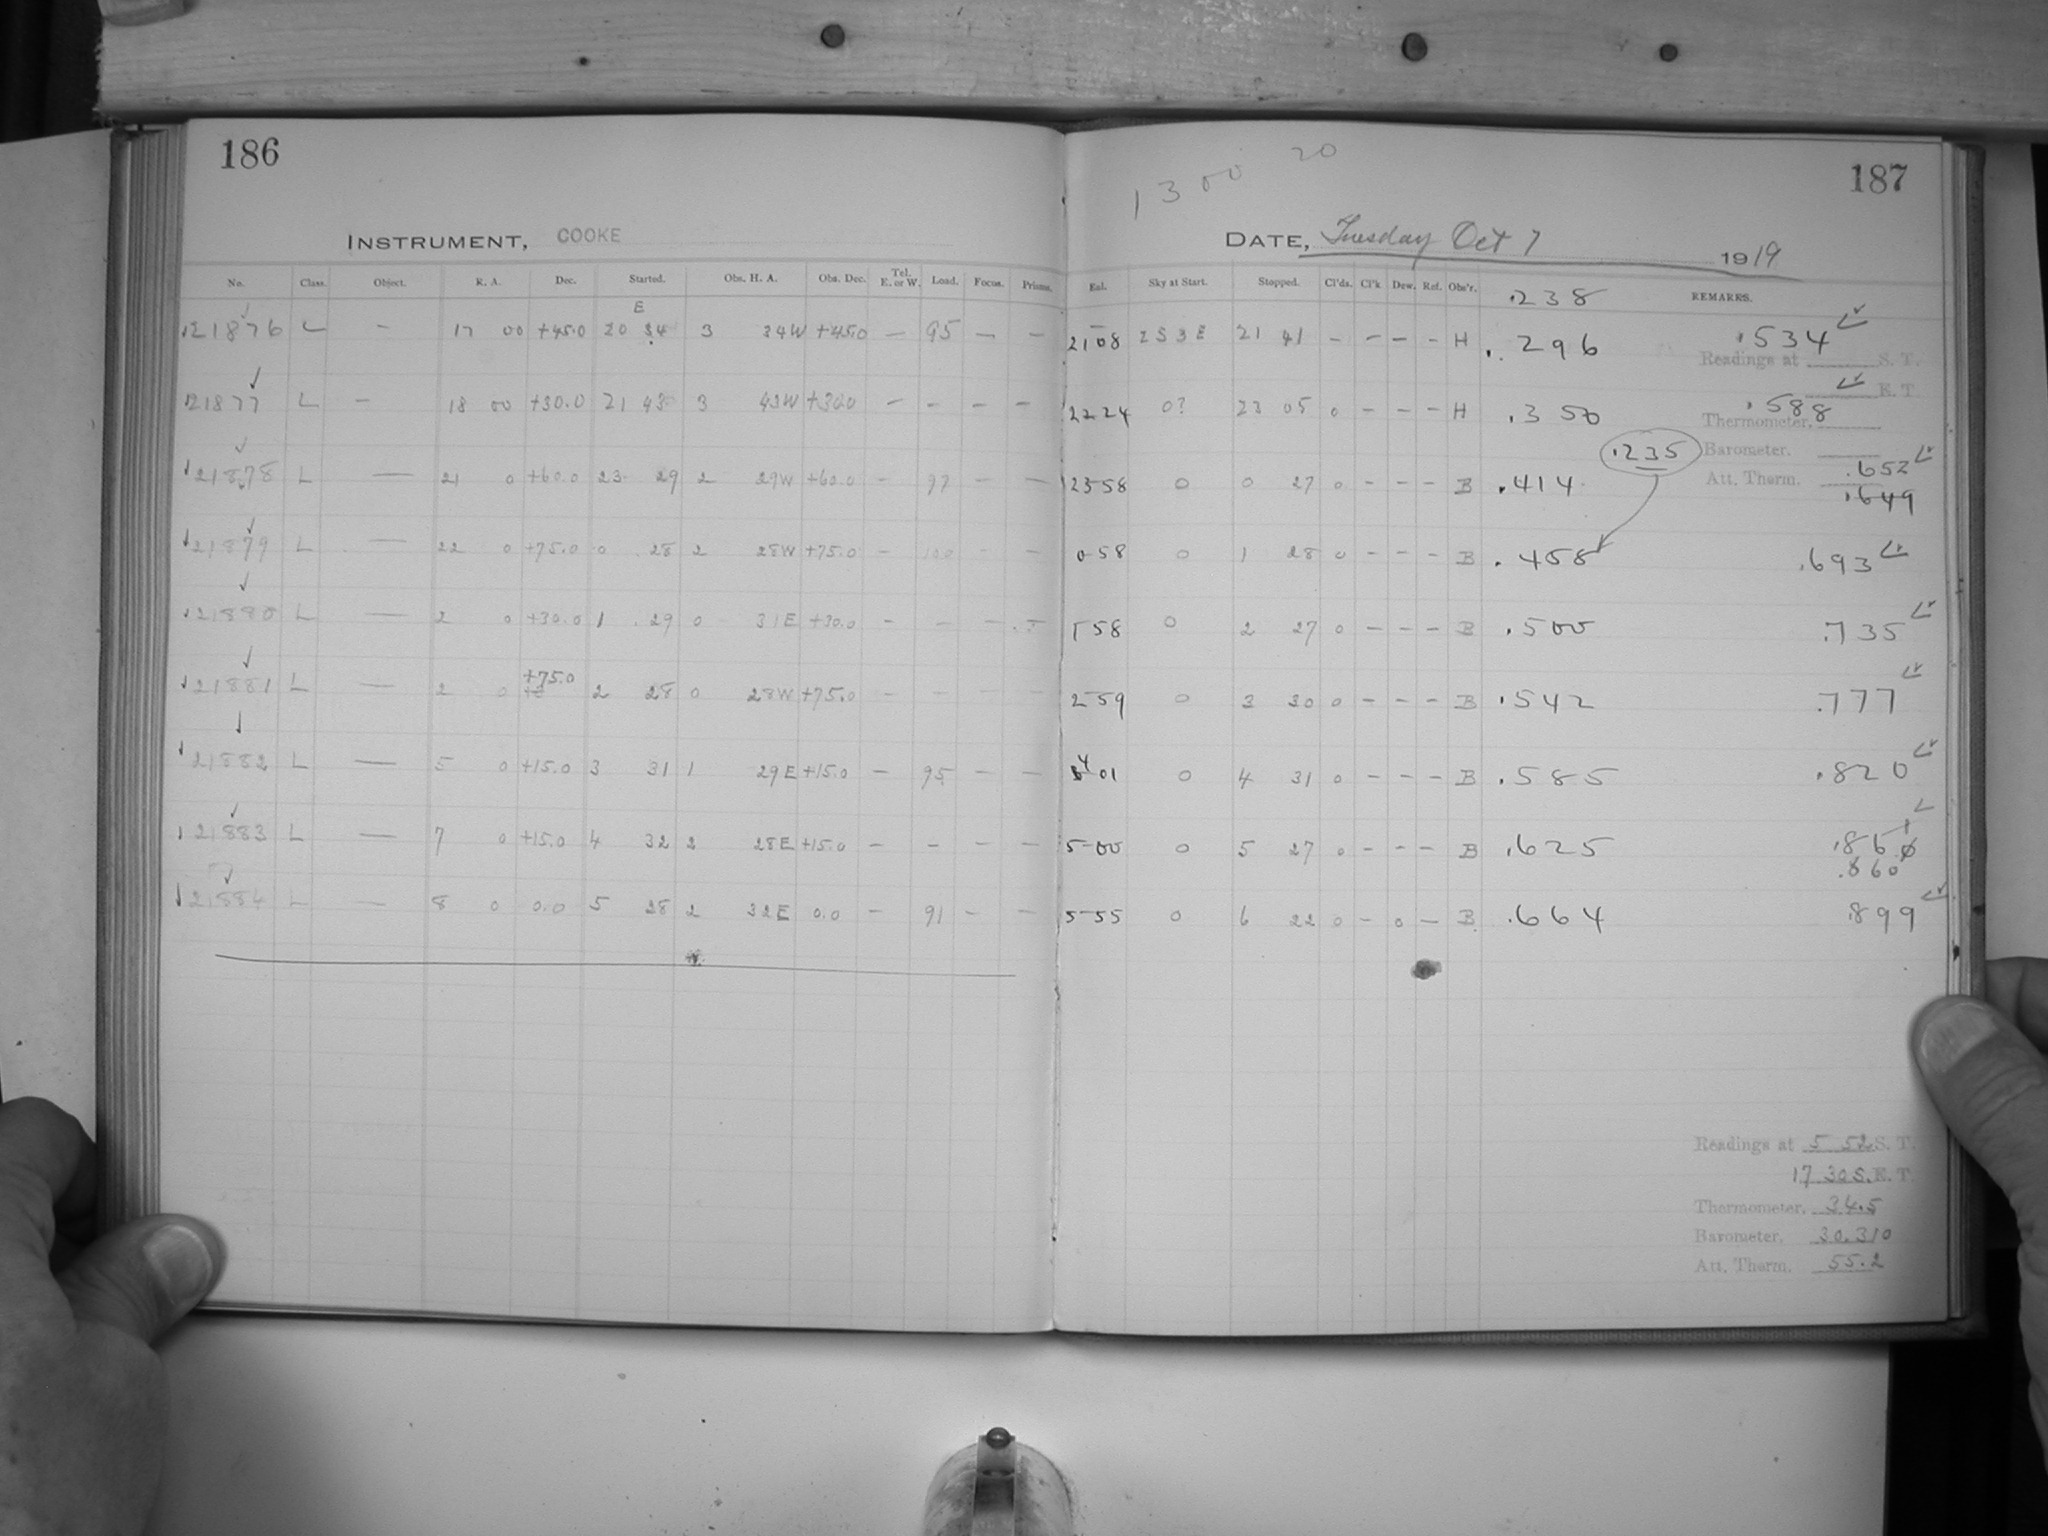 186
INSTRUMENT, COOKE
No. Class. Object. R. A. Dec. Started. Obs. H. A. Obs. Dec. Tel. E. or W. Load. Focus. Prisms.
E
21876 L – 17 00 +45.0 20 34 3 34W +45.0 – 95 – –
21877 L – 18 00 +30.0 21 43 3 43W +30.0 – – – –
21878 L — 21 0 +60.0 23 29 2 29W +60.0 – 97 – –
21879 L — 22 0 +75.0 0 28 2 28W +75.0 – 100 – –
21880 L — 2 0 +30.0 1 29 0 31E +30.0 – – – –
21881 L — 2 0 +75.0 2 28 0 28W +75.0 – – – –
21882 L — 5 0 +15.0 3 31 1 29E +15.0 – 95 – –
21883 L — 7 0 +15.0 4 32 2 28E +15.0 – – – –
21884 L — 8 0 0.0 5 28 2 32E 0.0 – 91 – –
1300 20
187
DATE, Tuesday Oct 7 1919
Eal. Sky at Start. Stopped. Cl'ds. Cl'k. Dew. Ref. Obs'r. .238 REMARKS.
21 08 2S3E 21 41 – – – – H .296 .534
Readings at S. T.
22 24 0? 23 05 0 – – – H .350 .588
E. T.
Thermometer.
.235 Barometer.
Att. Therm. .652
23 58 0 0 27 0 – – – B .414 .649
0 58 0 1 28 0 – – – B .458 .693
1 58 0 2 27 0 – – – B .500 .735
2 59 0 3 30 0 – – – B .542 .777
4 01 0 4 31 0 – – – B .585 .820
5 00 0 5 27 0 – – – B .625 .860
.860
5 55 0 6 22 0 – 0 – B .664 .899
Readings at 5 52 S. T.
17 30 S. E. T.
Thermometer. 34.5
Barometer. 30.310
Att. Therm. 55.2